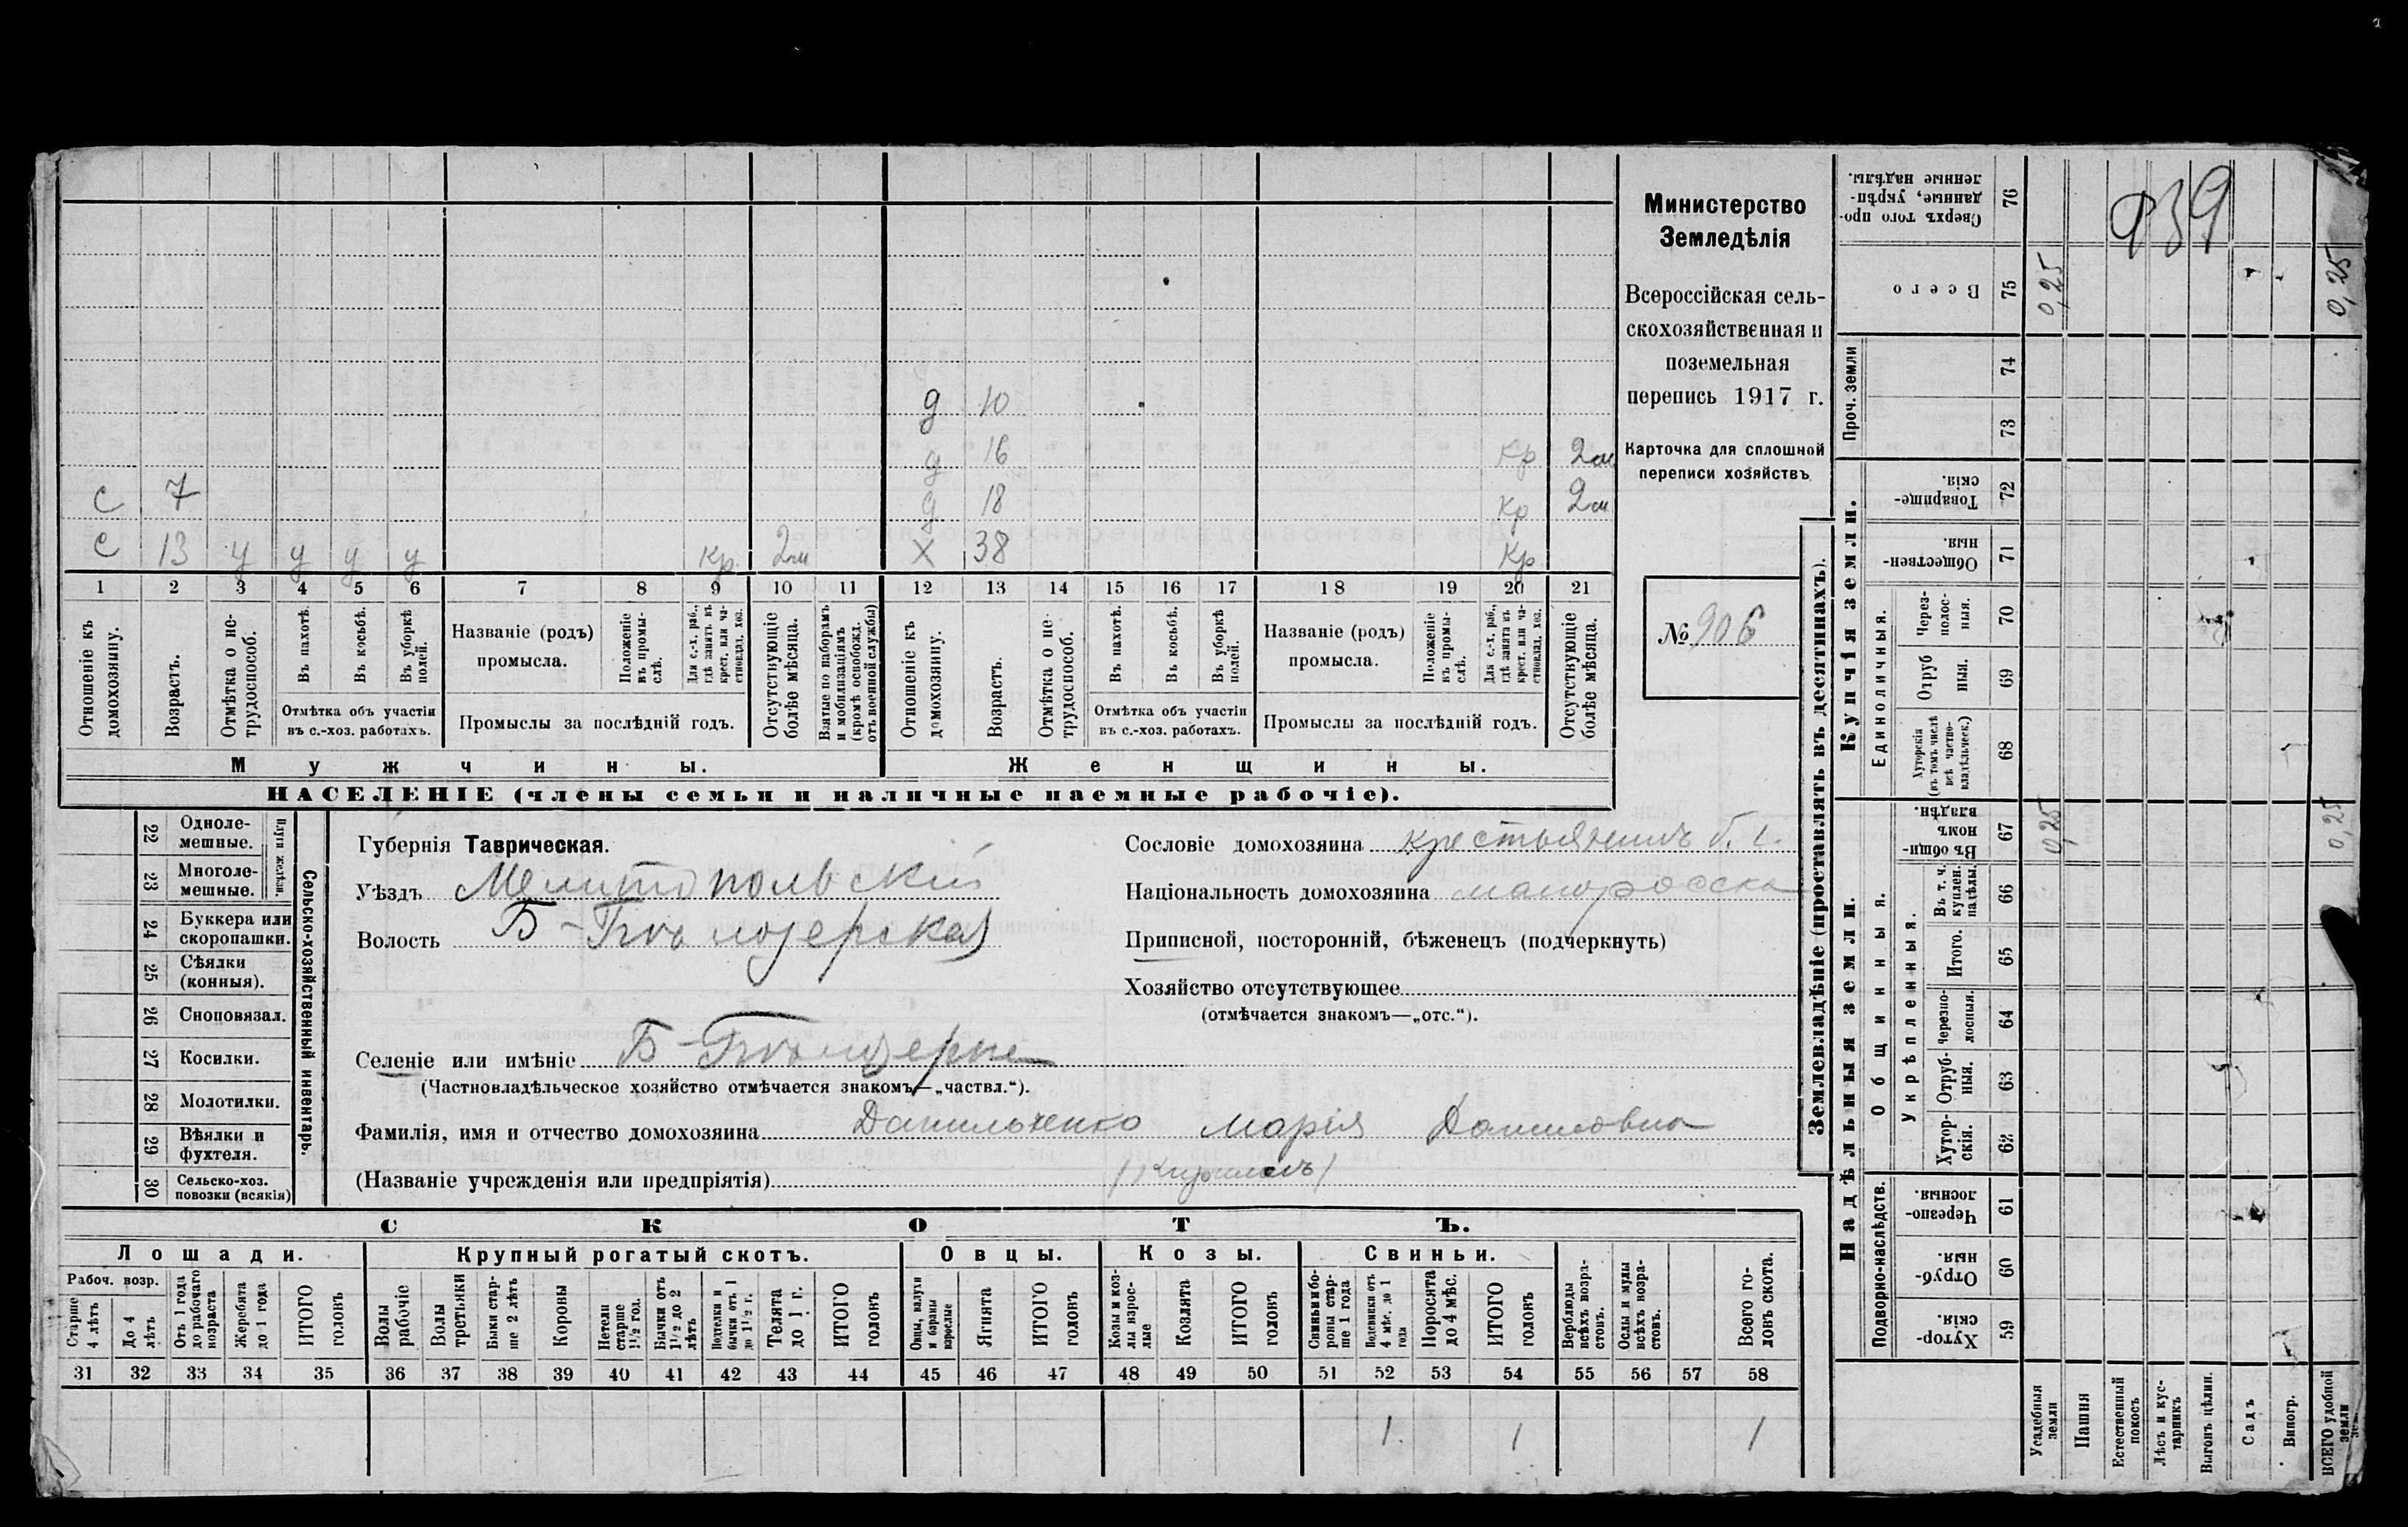 939
д 10
д 16 Кр 2м
С 7 д 18 Кр 2м
С 13 у у у у Кр. 2м Х 38 Кр
1 2 3 4 5 6 7 8 9 10 11 12 13 14 15 16 17 18 19 20 21
Отношеніе къ домохозяину.
Возрастъ.
Отмѣтка о не-трудоспособ.
Въ пахотѣ.
Въ косьбѣ.
Въ уборкѣ полей.
Отмѣтка объ участіи въ с.-хоз. работахъ.
Названіе (родъ) промысла.
Положеніе въ промы-слѣ.
Для с.-х. раб., гдѣ занятъ въ крест. или ча-стновлад. хоз.
Промыслы за послѣдній годъ.
Отсутствующіе болѣе мѣсяца.
Взятые по наборамъ и мобилизаціямъ (кромѣ освобожд. отъ военной службы)
Отношеніе къ домохозяину.
Возрастъ.
Отмѣтка о не-трудоспособ.
Въ пахотѣ.
Въ косьбѣ.
Въ уборкѣ полей.
Отмѣтка объ участіи въ с.-хоз. работахъ.
Названіе (родъ) промысла.
Положеніе въ промы-слѣ.
Для с.-х. раб., гдѣ занятъ въ крест. или ча-стновлад. хоз.
Промыслы за послѣдній годъ.
Отсутствующіе болѣе мѣсяца.
Мужчины. Женщины.
НАСЕЛЕНІЕ (члены семьи и наличные наемные рабочіе).
Министерство
Земледѣлія
Всероссійская сель-
скохозяйственная и
поземельная
перепись 1917 г.
Карточка для сплошной
переписи хозяйствъ
№ 906
22 Одноле-мешные.
23 Многоле-мешные.
Плуги желѣзн.
24 Буккера или скоропашки.
25 Сѣялки (конныя).
26 Сноповязал.
27 Косилки.
28 Молотилки.
29 Вѣялки и фухтеля.
30 Сельско-хоз. повозки (всякія)
Сельско-хозяйственный инвентарь.
Губернія Таврическая.
Уѣздъ Мелитопольскій
Волость Б-Бѣлозерская
Селеніе или имѣніе
(Частновладѣльческое хозяйство отмѣчается знакомъ—„частвл.“).
Фамилія, имя и отчество домохозяина Данильченко Марія Даниловна
(Названіе учрежденія или предпріятія)
Сословіе домохозяина крестьянинъ
Національность домохозяина малоросска
Приписной, посторонній, бѣженецъ (подчеркнуть)
Хозяйство отсутствующее
(отмѣчается знакомъ—„отс.“).
СКОТЪ.
Лошади. Крупный рогатый скотъ. Овцы. Козы. Свиньи.
Рабоч. возр.
Старше 4 лѣтъ
До 4 лѣтъ
Отъ 1 года до рабочаго возраста
Жеребята до 1 года
ИТОГО головъ
Волы рабочіе
Волы третьяки
Быки стар-ше 2 лѣтъ
Коровы
Нетели старше 1½ год.
Бычки отъ 1½ до 2 лѣтъ
Подтелки и бычки отъ 1 до 1½ г.
Телята до 1 г.
ИТОГО головъ
Овцы, валухи и бараны взрослые
Ягнята
ИТОГО головъ
Козы и коз-лы взрос-лые
Козлята
ИТОГО головъ
Свиньи и бо-ровы стар-ше 1 года
Подсвинки отъ 4 мѣс. до 1 года
Поросята до 4 мѣс.
ИТОГО головъ
Верблюды всѣхъ возра-стовъ.
Ослы и мулы всѣхъ возра-стовъ.
Всего го-ловъ скота.
31 32 33 34 35 36 37 38 39 40 41 42 43 44 45 46 47 48 49 50 51 52 53 54 55 56 57 58
1 1 1
Землевладѣніе (проставлять въ десятинахъ).
Сверхъ того про-данные, укрѣп-ленные надѣлы. 76
Всего 75 0,25 0,25
Проч. земли 74 73
Купчія земли.
Товарище-скія. 72
Обществен-ныя. 71
Единоличныя.
Через-полос-ныя. 70
Отруб-ныя. 69
Хуторскія (въ томъ числѣ всѣ частно-владѣльческ.) 68
Надѣльныя земли.
Общинныя.
Въ общи-номъ владѣн. 67 0,25 0,25
Укрѣпленныя.
Въ т. ч. куплен. надѣлы. 66
Итого. 65
Черезпо-лосныя. 64
Отруб-ныя. 63
Хутор-скія. 62
Подворно-наслѣдств.
Черезпо-лосныя. 61
Отруб-ныя. 60
Хутор-скія. 59
Усадебныя земли
Пашня
Естественный покосъ
Лѣсъ и кус-тарникъ
Выгонъ цѣлин.
Садъ
Виногр.
ВСЕГО удобной земли